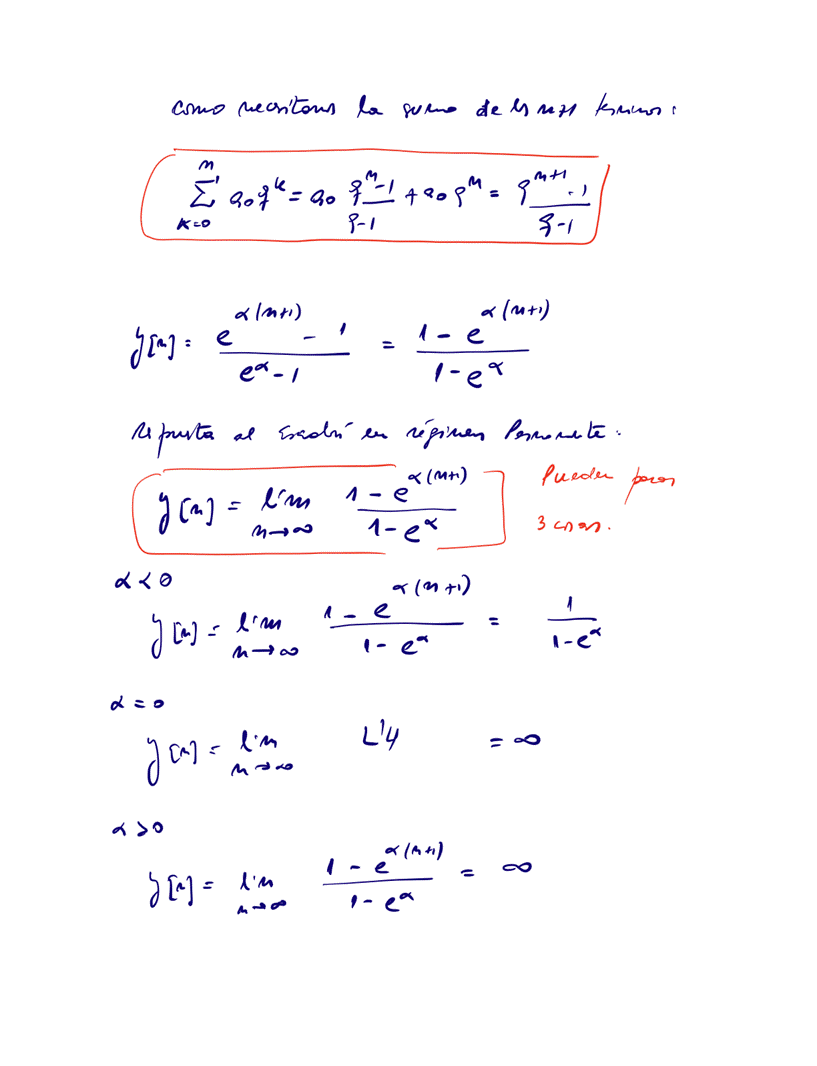 como necesitamos la suma de los n+1 términos:
n
∑ a₀ q^k = a₀ (q^n - 1)/(q - 1) + a₀ q^n = (q^(n+1) - 1)/(q - 1)
k=0
y[n] = (e^(α(n+1)) - 1)/(e^α - 1) = (1 - e^(α(n+1)))/(1 - e^α)
Respuesta al Escalón en régimen Permanente:
y[n] = lím n→∞ (1 - e^(α(n+1)))/(1 - e^α)
Pueden pasar
3 cosas.
α < 0
y[n] = lím n→∞ (1 - e^(α(n+1)))/(1 - e^α) = 1/(1 - e^α)
α = 0
y[n] = lím n→∞ L'H = ∞
α > 0
y[n] = lím n→∞ (1 - e^(α(n+1)))/(1 - e^α) = ∞